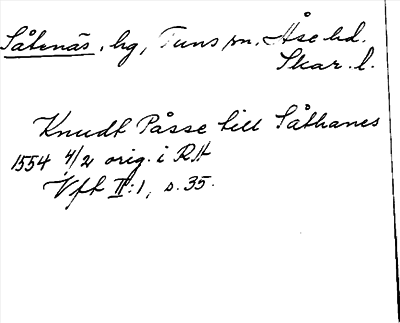 Såtenäs, hg, Tuns sn, Åse hd.
Skar. l.
Knudt Påsse till Såthanes
1554 4/2 orig. i RA
Vft II:1, s. 35.